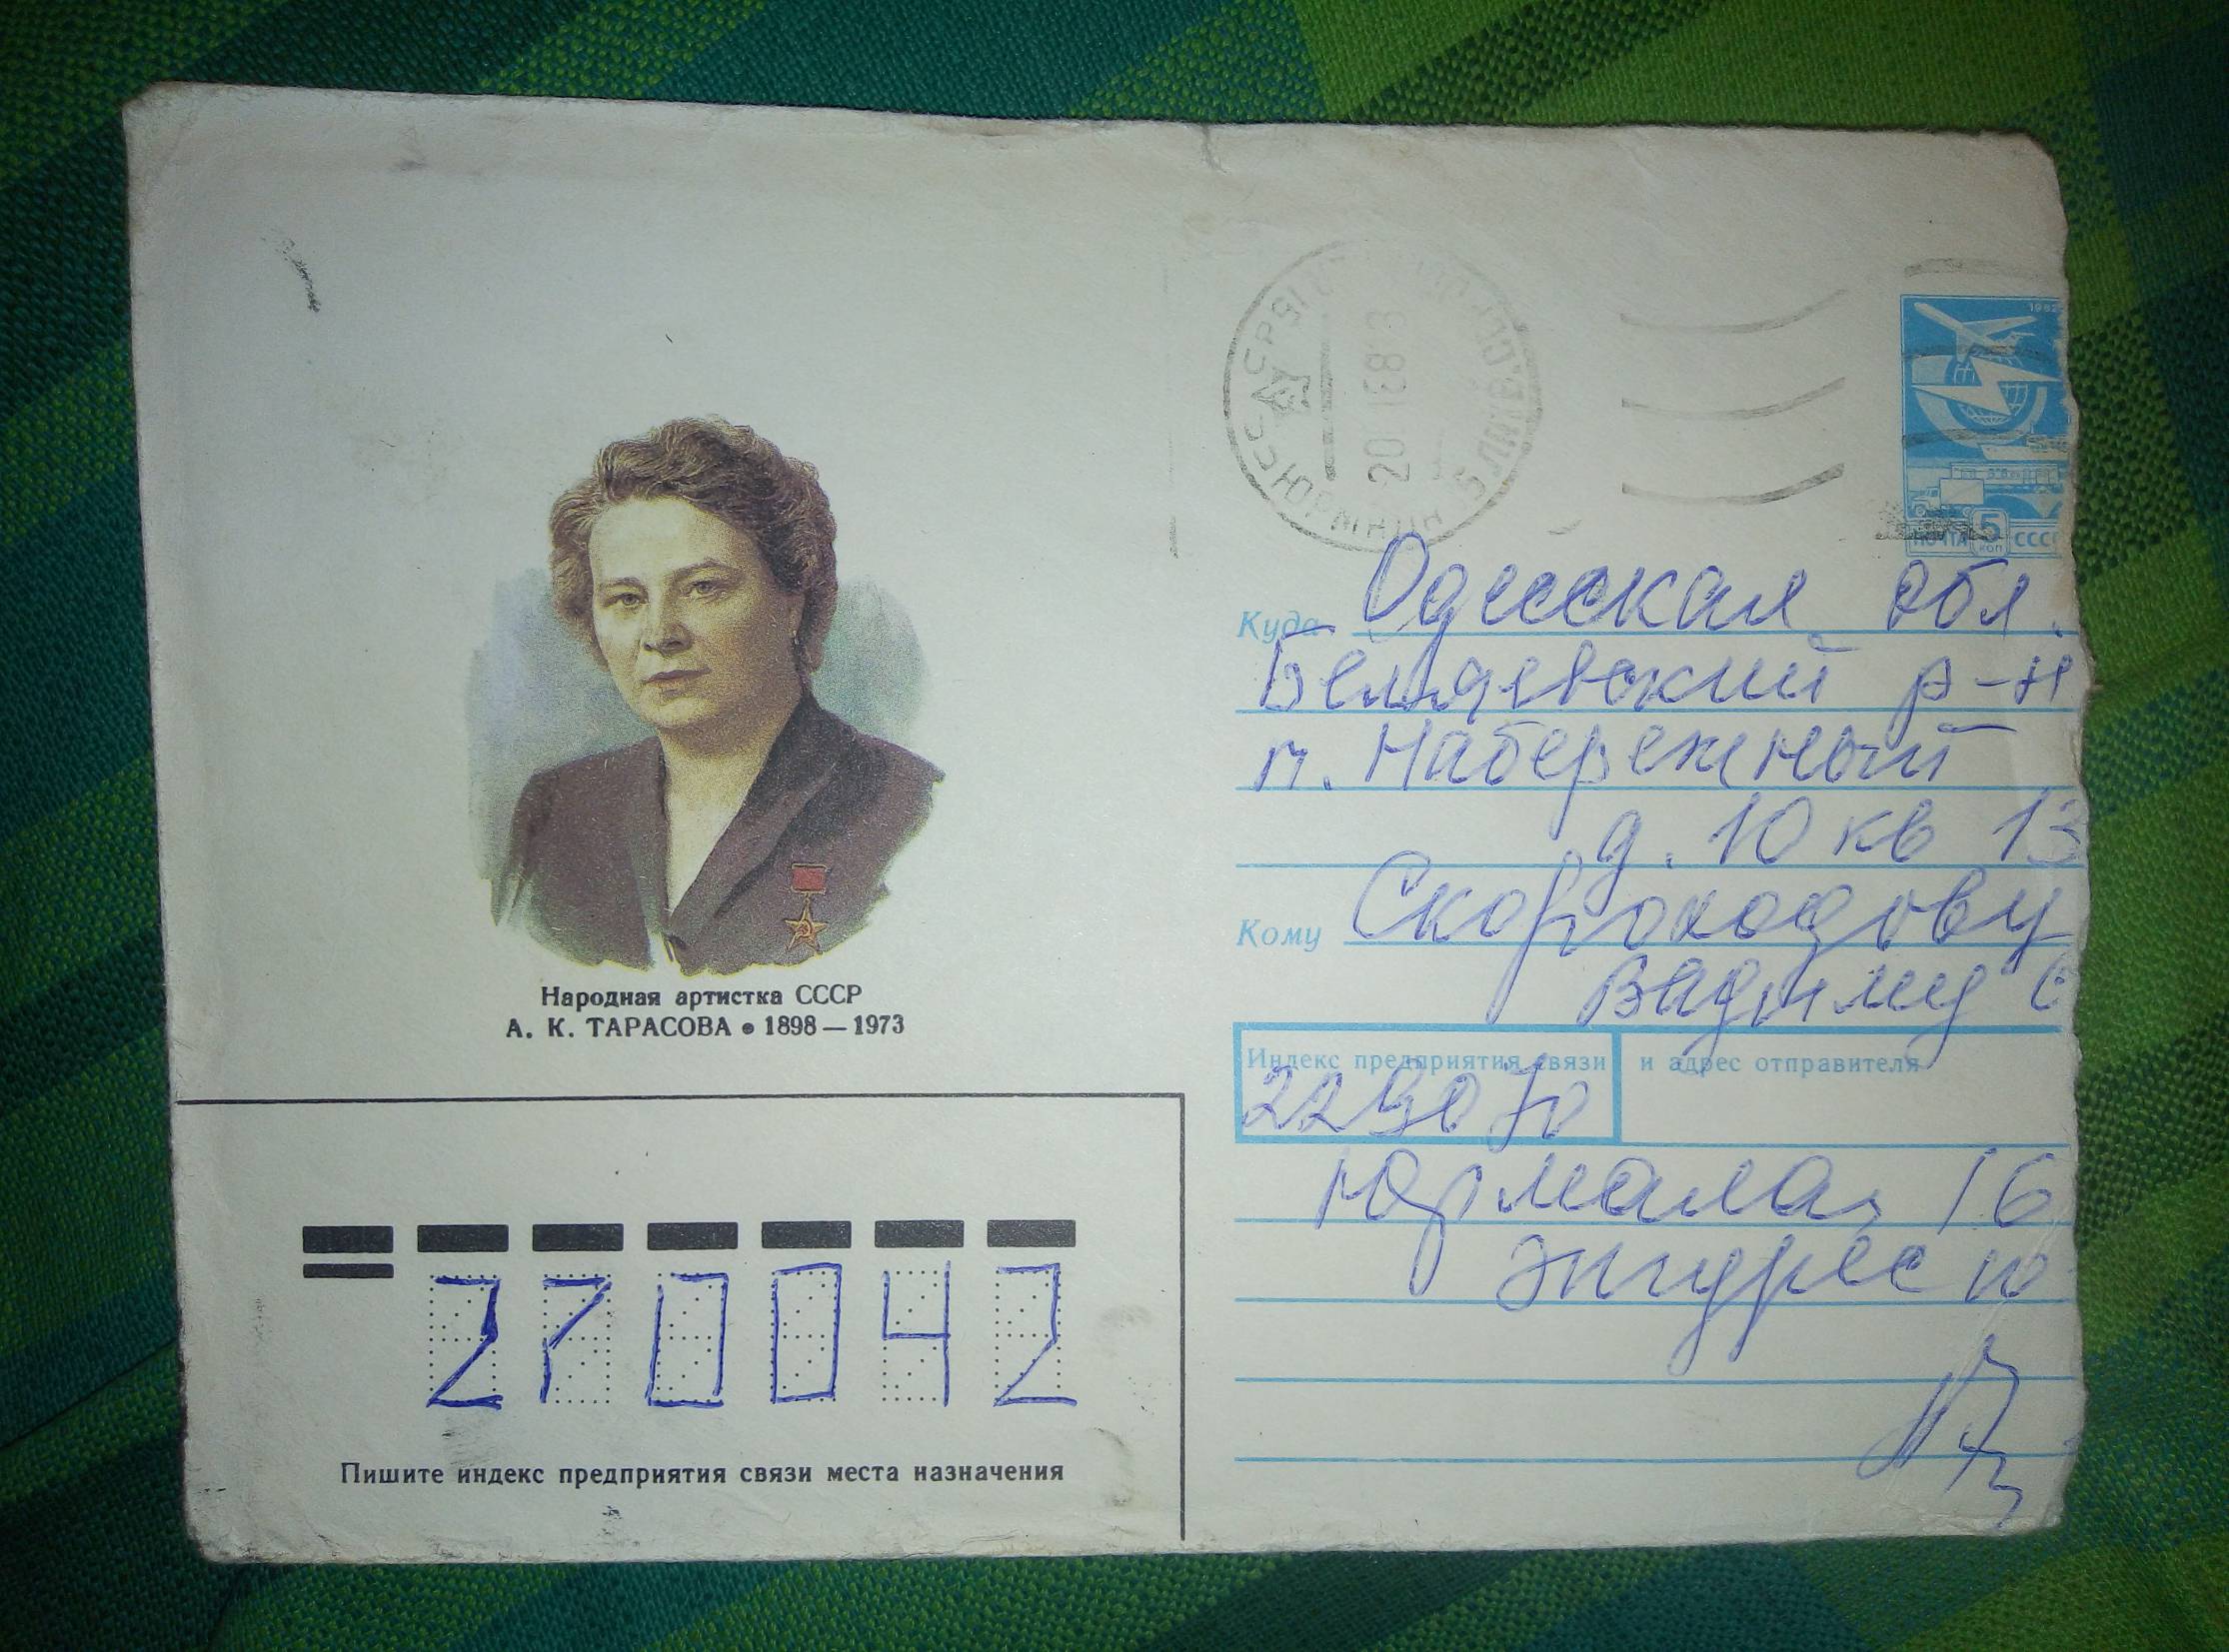 1982
ПОЧТА 5 КОП СССР
20 88
ЮРМАЛА
Куда Одесская обл.
Беляевский р-н
п. Набережный
д. 10 кв 13
Кому Скороходову
Вадиму
Народная артистка СССР
А. К. ТАРАСОВА • 1898—1973
Индекс предприятия связи и адрес отправителя
229070
Юрмала, 16
270042
Пишите индекс предприятия связи места назначения